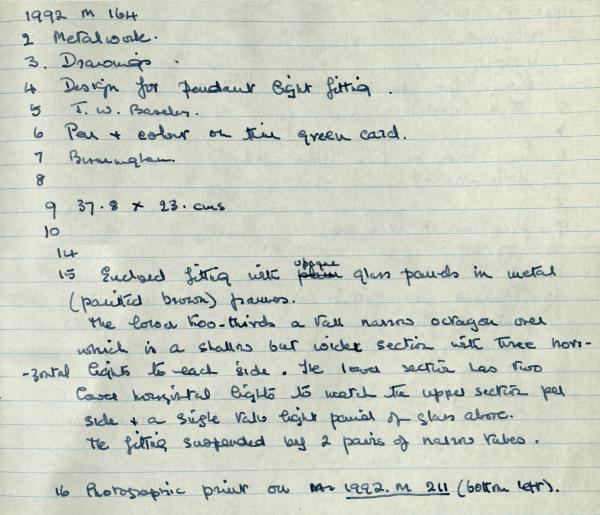 1992 M 164
2 Metalwork.
3. Drawings.
4 Design for pendant light fitting.
5 T. W. Baseley.
6 Pen + colour on thin green card.
7 Birmingham.
8
9 37.8 x 23. cms
10
14
15 Enclosed fitting with plain opaque glass panels in metal
(painted brown) frames.
The lower two-thirds a tall narrow octagon over
which is a shallow but wider section with three hori-
-zontal lights to each side. The lower section has two
lower horizontal lights to match the upper section per
side + a single tall light panel of glass above.
The fitting suspended by 2 pairs of narrow tubes.
16 Photographic print on M 1992. M 211 (bottom left).